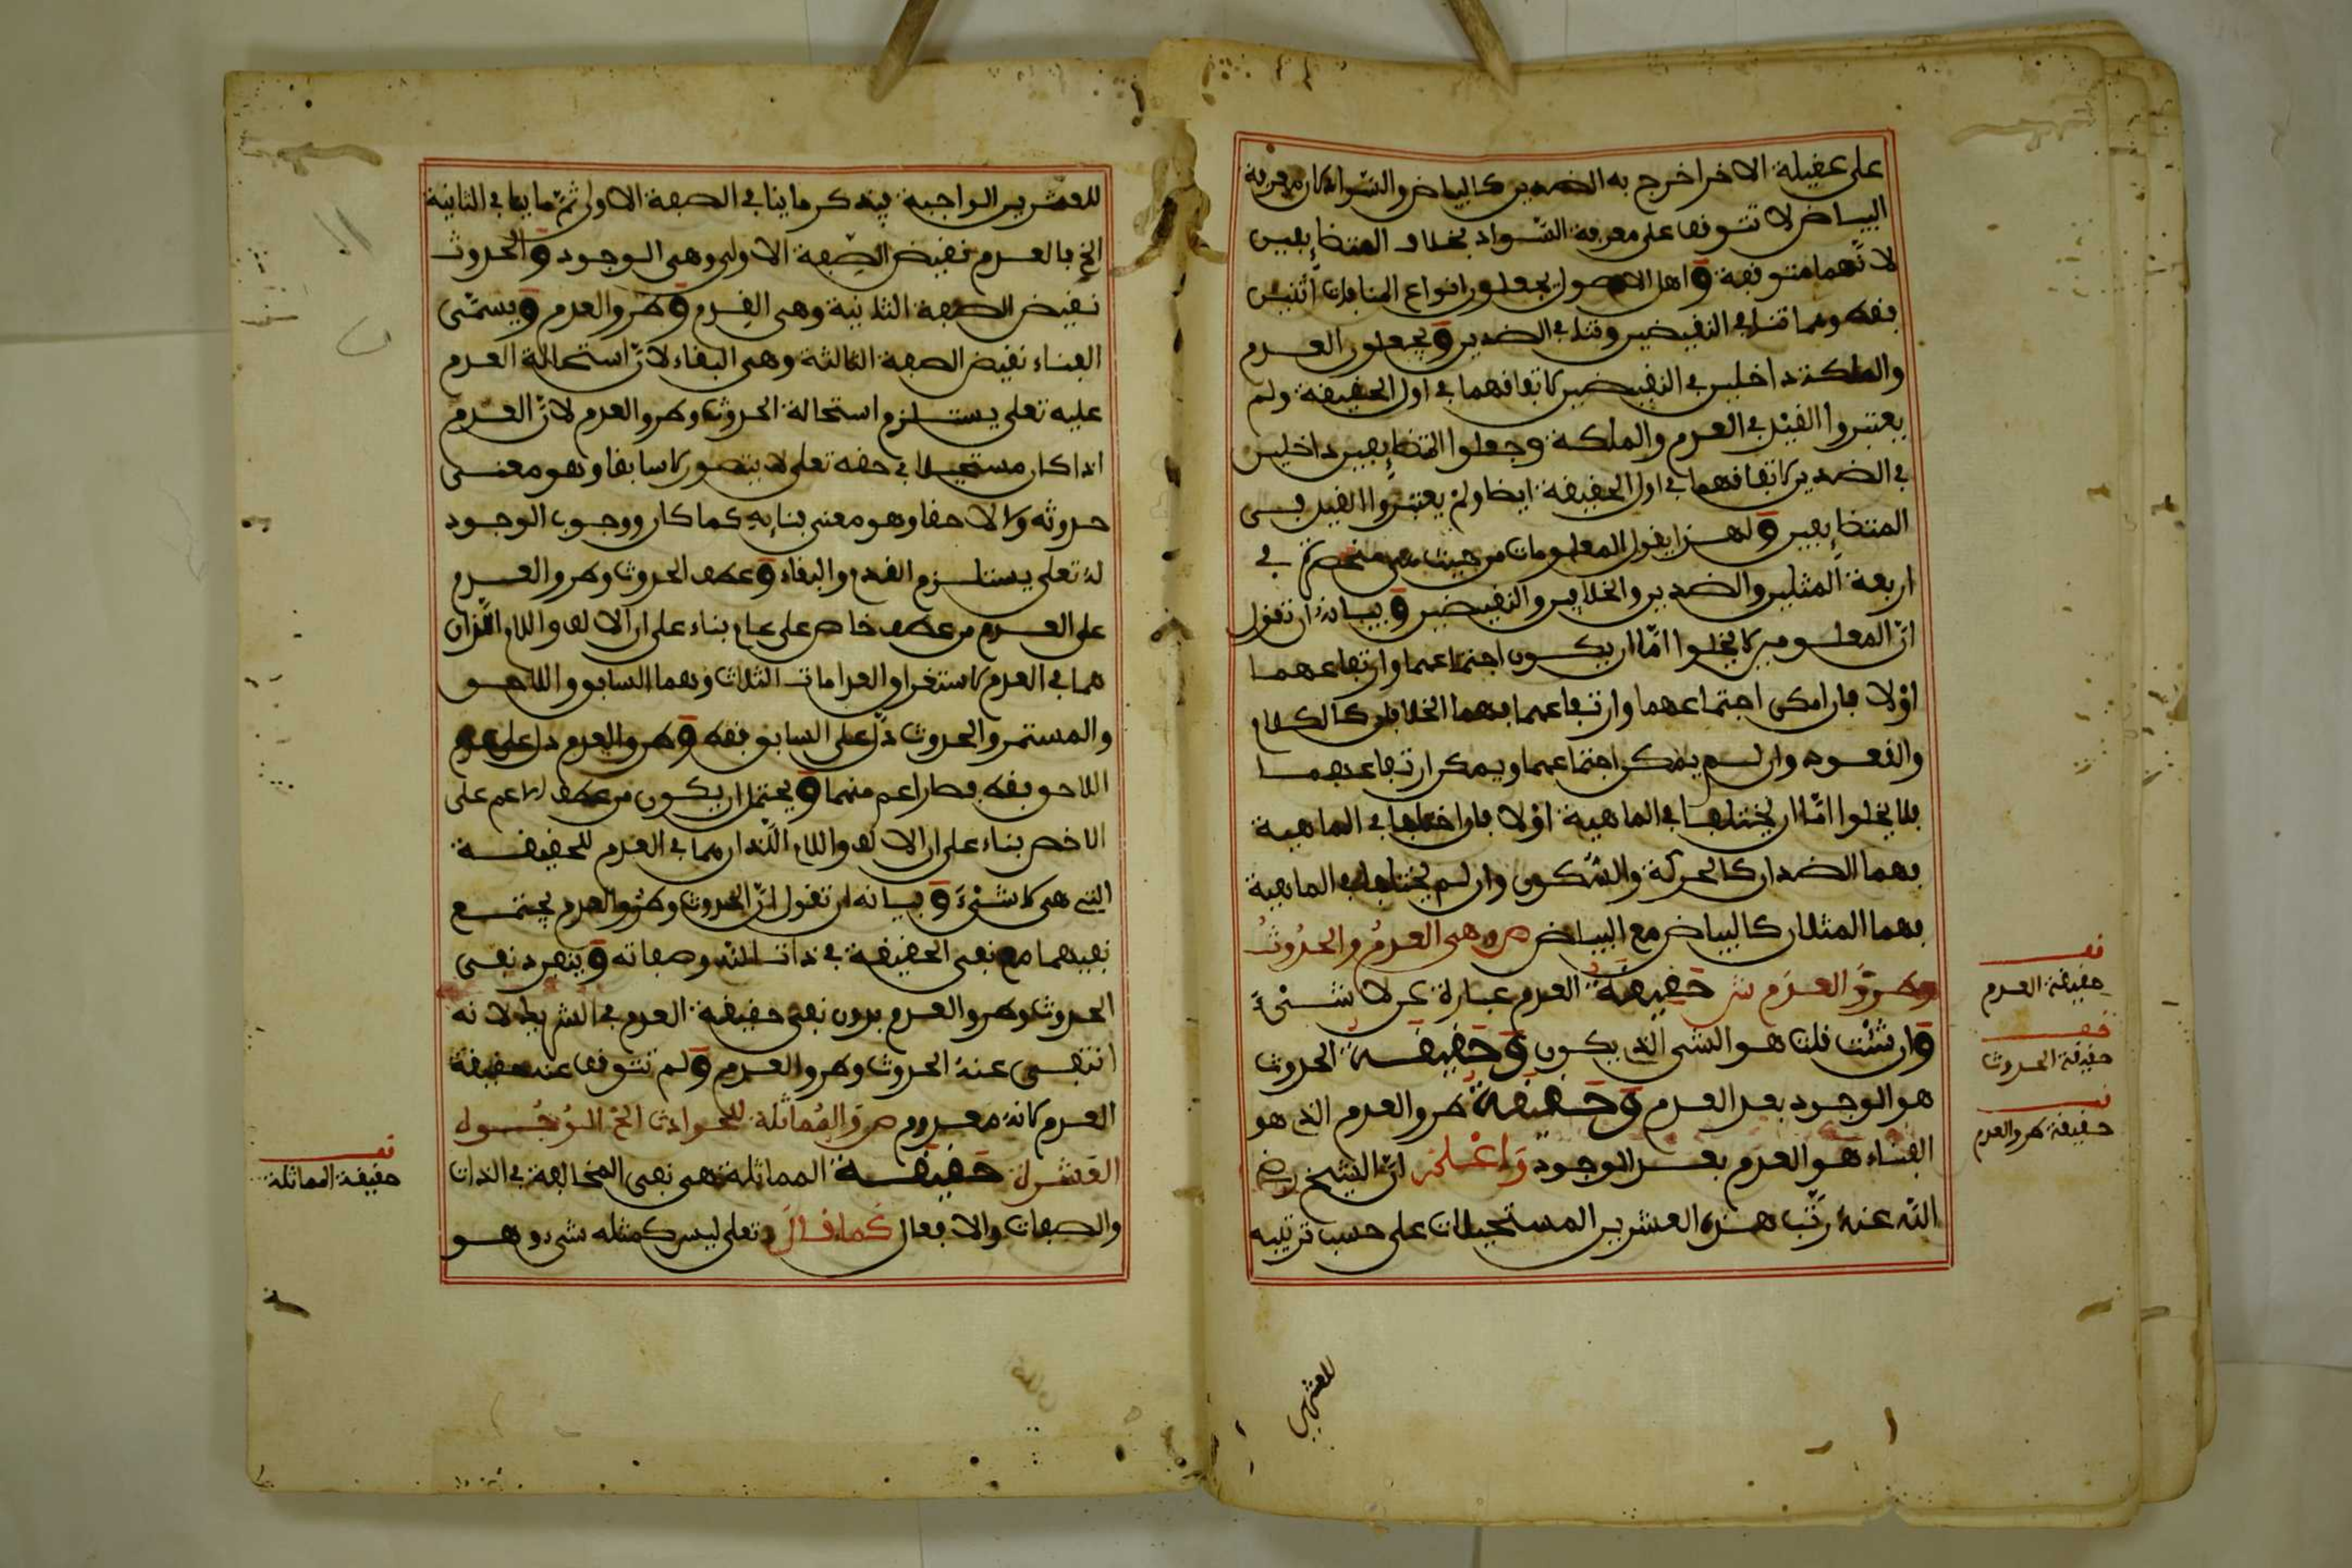 على عقيلة الاخر اخرج به الضدين كالبياض والسواد فان معرفة
البياض لا تتوقف على معرفة السواد بخلاف المتضايفين
لانهما متوقفة واهل الاصول يجعلون انواع المنافات اثنين
فقط وهما تنافي النقيضين وتنافي الضدين ويجعلون العدم
والملكة داخلين في النقيضين لاتفاقهما في اول الحقيقة ولم
يعتبروا القيد في العدم والملكة وجعلوا المتضايفين داخلين
في الضدين لاتفاقهما في اول الحقيقة ايضا ولم يعتبروا القيد في
المتضايفين ولهذا يقول المعلومات من حيث هي منحصرة في
اربعة المثلين والضدين والخلافين والنقيضين وبيانه ان تقول
ان المعلومين لا يخلوا اما ان يكون اجتماعهما وارتفاعهما
اولا فان امكن اجتماعهما وارتفاعهما فهما الخلافان كالكلام
والقعود وان لم يمكن اجتماعهما ويمكن ارتفاعهما
فلا يخلوا اما ان يختلفا في الماهية اولا فان اختلفا في الماهية
فهما الضدان كالحركة والسكون وان لم يختلفا في الماهية
فهما المثلان كالبياض مع البياض ص وهي العدم والحدوث
وطروّ العدم ش حقيقة العدم عبارة عن لا شيء
وان شئت قلت هو الشي الذي يكون وحقيقة الحدوث
هو الوجود بعد العدم وحقيقة طرو العدم الذي هو
الفناء هو العدم بعد الوجود واعلم ان الشيخ رضي
الله عنه رتب هذه العشرين المستحيلات على حسب ترتيبه
نف
حقيقة العدم
نف
حقيقة الحدوث
نف
حقيقة طرو العدم
للعشرين
للعشرين الواجبة فيذكر ما ينافي الصفة الاولى ثم ما ينافي الثانية
الخ فالعدم نقيض الصفة الاولى وهي الوجود والحدوث
نقيض الصفة الثانية وهي القدم وطرو العدم ويسمى
الفناء نقيض الصفة الثالثة وهي البقاء لان استحالة العدم
عليه تعلى يستلزم استحالة الحدوث وطرو العدم لان العدم
اذا كان مستحيلا في حقه تعلى لا يتصور لا سابقا وهو معنى
حدوثه ولا لاحقا وهو معنى فنايه كما كان ووجوب الوجود
له تعلى يستلزم القدم والبقاء وعطف الحدوث وطرو العدم
على العدم من عطف خاص على عام بناء على ان الالف واللام اللذان
هما في العدم لاستغراق العدامات الثلاث وهما السابق واللاحق
والمستمر والحدوث دل على السابق فقط وطرو العدم دل على العدم
اللاحق فقط فصار اعم منهما ويحتمل ان يكون من عطف الاعم على
الاخص بناء على ان الالف واللام اللذان هما في العدم للحقيقة
التي هي لا شيء وبيانه ان تقول ان الحدوث وطرو العدم يجتمع
نفيهما مع نفي الحقيقة في ذات الله وصفاته وينفرد نفي
الحدوث وطرو العدم بدون نفي حقيقة العدم في الشريك لانه
انتفى عنه الحدوث وطرو العدم ولم تتوقف عنه حقيقة
العدم لانه معدوم ص والمماثلة للحوادث الخ الوجـول
العشرين حقيقة المماثلة هي نفي المخالفة في الذات
والصفات والافعال كما قال تعلى ليس كمثله شيء وهو
نف
حقيقة المماثلة